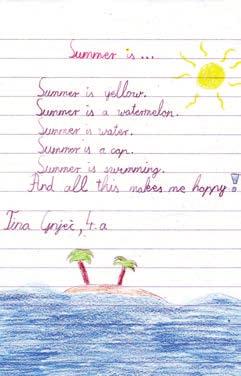 Summer is...
Summer is yellow.
Summer is a watermelon.
Summer is water.
Summer is a cap.
Summer is swimming.
And all this makes me happy!
Tina Gnječ, 4.a